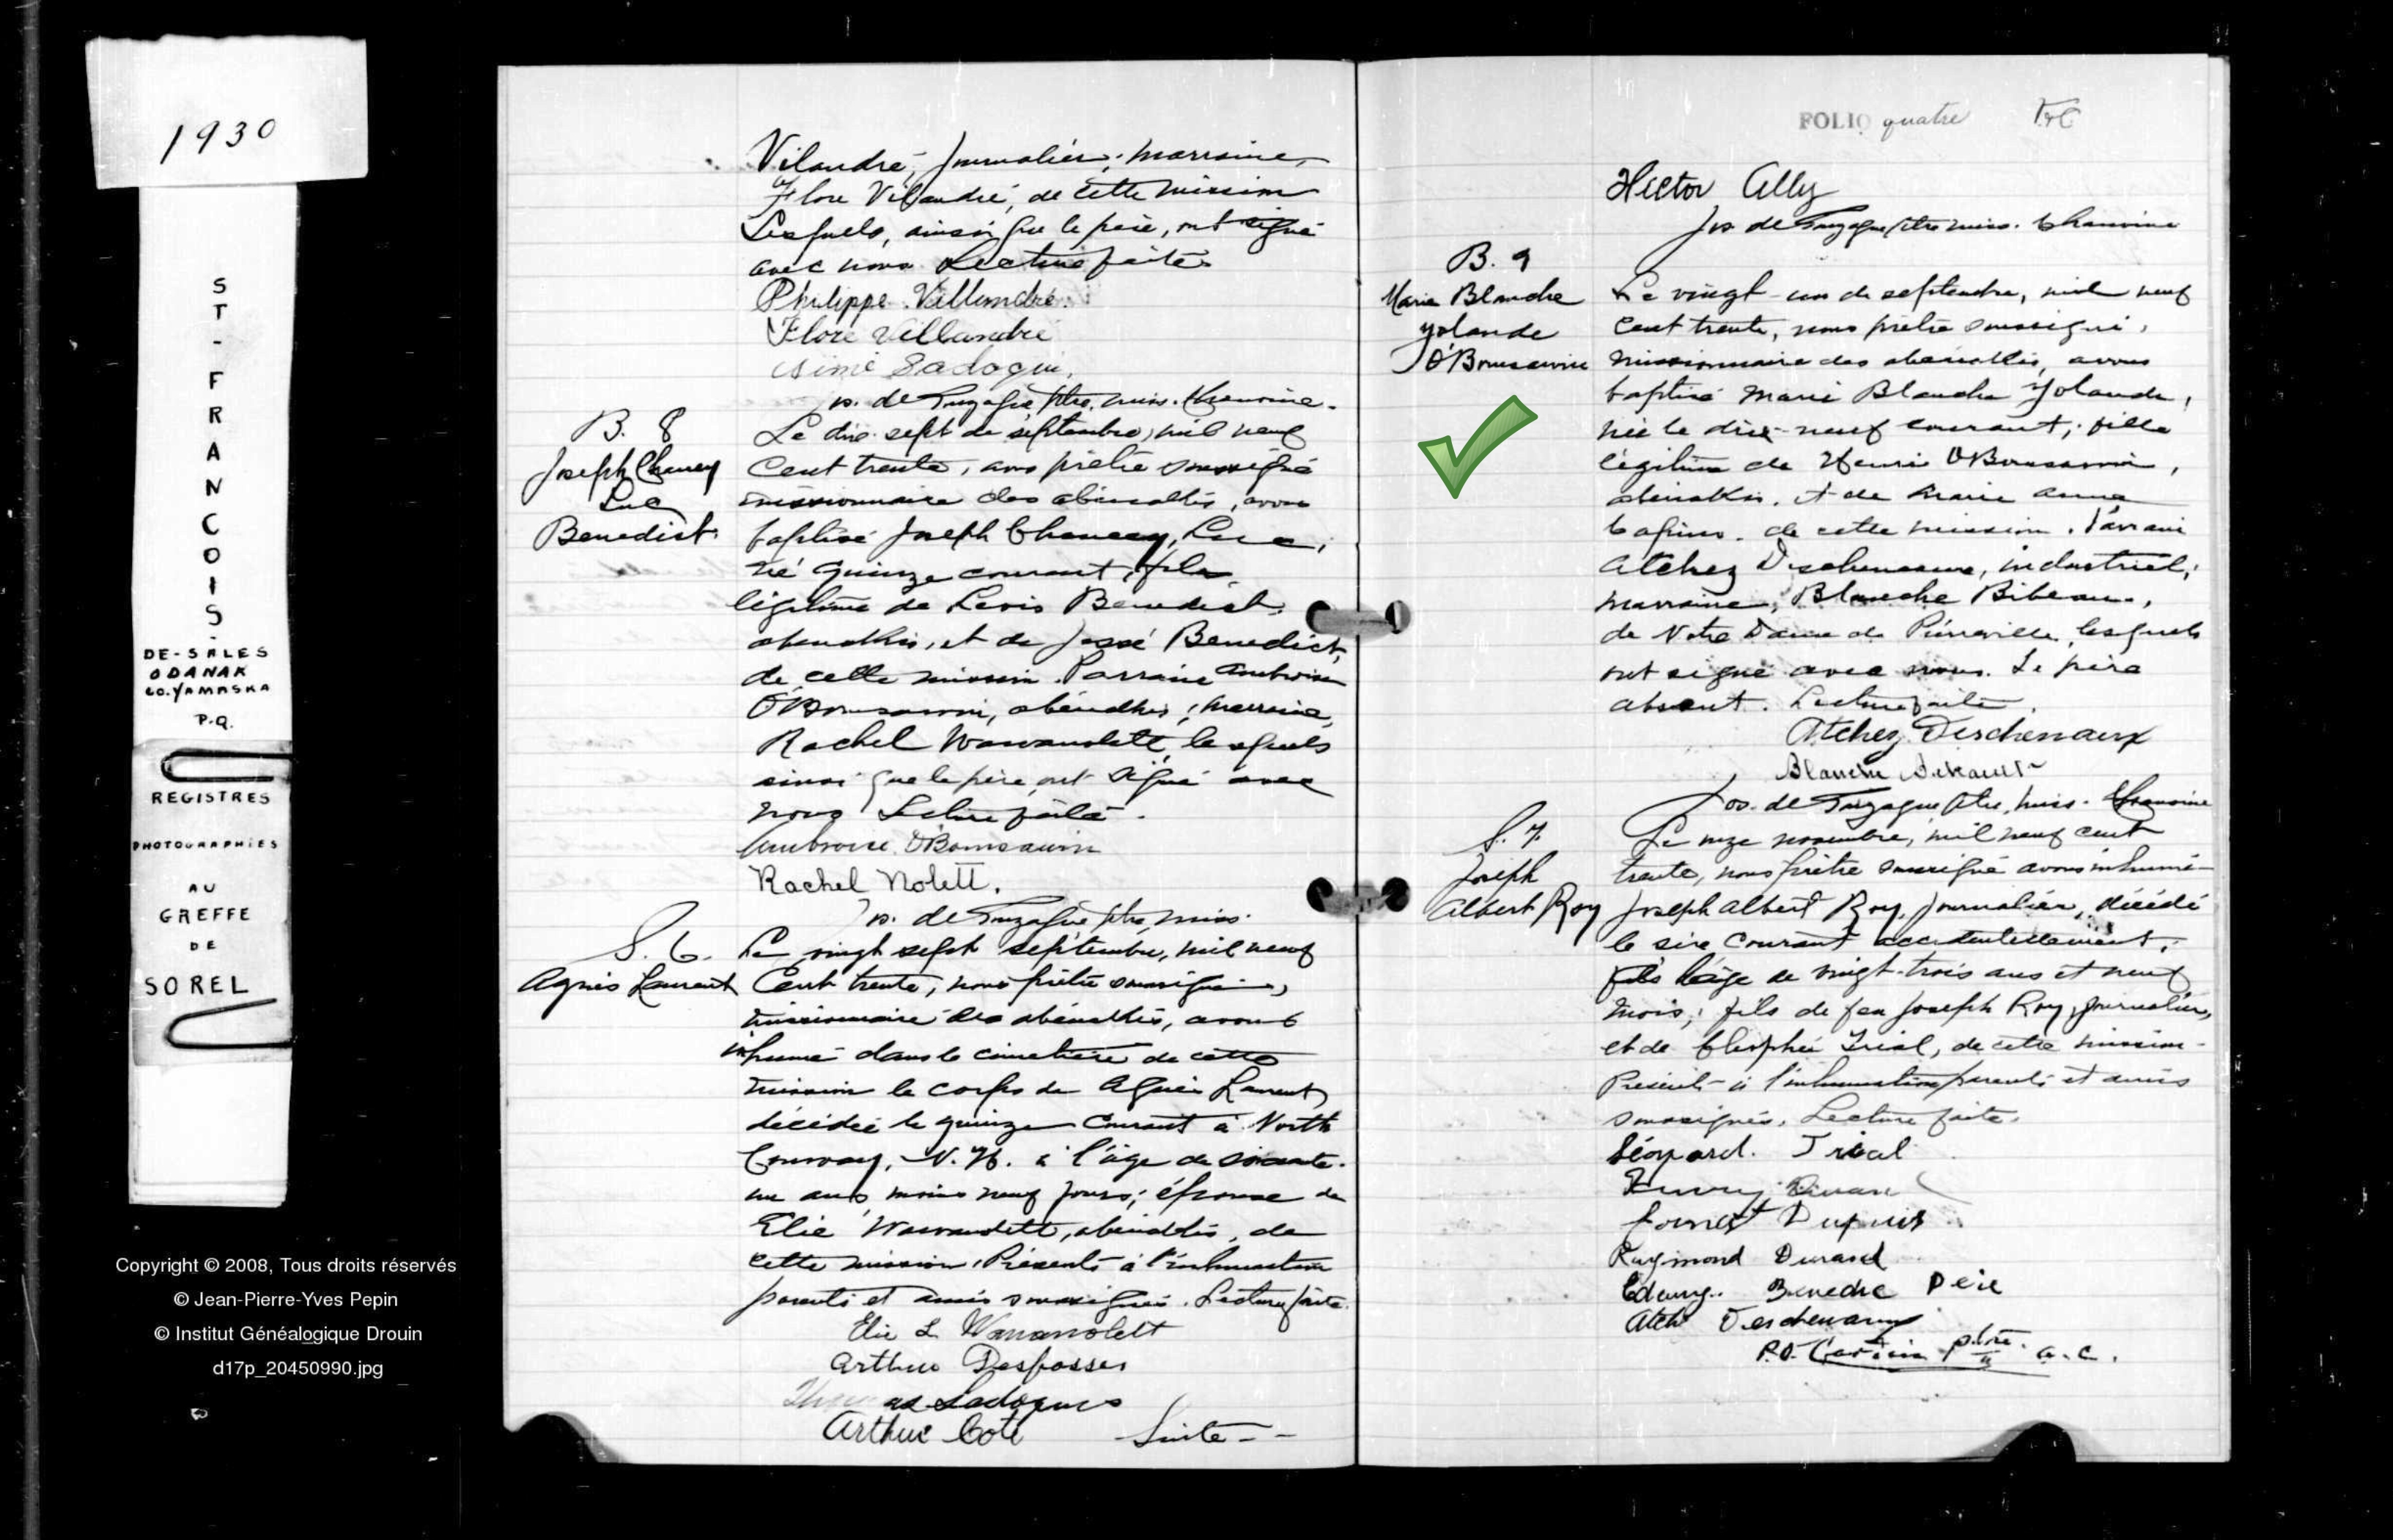 1930
ST-FRANCOIS-
DE-SALES
ODANAK
CO. YAMASKA
P.Q.
REGISTRES
PHOTOGRAPHIES
AU
GREFFE
DE
SOREL
Copyright © 2008, Tous droits réservés
© Jean-Pierre-Yves Pepin
© Institut Généalogique Drouin
d17p_20450990.jpg
Vilandré, journalier; marraine,
Flore Vilandré, de cette mission
Lesquels, ainsi que le père, ont signé
avec nous Lecture faite
Philippe Villandré.
Flore Villandré
Sadoqui.
Jos. de Gonzague ptre, miss. Chanoine.
B. 8
Joseph Chancey
Luc
Benedict.
Le dix-sept de septembre, mil neuf
cent trente, nous prêtre soussigné
missionnaire des abénakis, avons
baptisé Joseph Chancey, Luc,
né quinze courant, fils
légitime de Levis Benedict,
abenakis, et de Jessé Benedict,
de cette mission. Parrain Ambroise
O'Bomsawin, abénakis; marraine,
Rachel Wawanolett, lesquels
ainsi que le père, ont signé avec
nous Lecture faite.
Ambroise O'Bomsawin
Rachel Nolett.
Jos. de Gonzague ptre, miss.
S. 6.
Agnès Laurent
Le vingt sept septembre, mil neuf
Cent trente, nous prêtre soussigné,
missionnaire des abénakis, avons
inhumé dans le cimetière de cette
mission le corps de Agnès Laurent,
décédée le quinze courant à North
Conway, N. H. à l'âge de soixante-
un ans, moins neuf jours; épouse de
Elie Wawanolett, abénakis, de
cette mission. Présents à l'inhumation
parents et amis soussignés. Lecture faite.
Elie L. Wawanolett
Arthur Desfosses
Arthur Coté
Suite - -
FOLIO quatre
Hector Ally
Jos de Gonzague ptre miss. Chanoine
B. 9
Marie Blanche
Yolande
O'Bomsawin
Le vingt-un de septembre, mil neuf
cent trente, nous prêtre soussigné,
missionnaire des abénakis, avons
baptisé Marie Blanche Yolande,
née le dix-neuf courant; fille
légitime de Henri O'Bomsawin,
abénakis, et de Marie Anna
de cette mission. Parrain
Atchez Deschenaux, industriel;
marraine, Blanche Bibeau,
de Notre Dame de Pierreville, lesquels
ont signé avec nous. Le père
absent. Lecture faite.
Atchez Deschenaux
Blanche
Jos. de Gonzague Ptre, miss. Chanoine
S. 7.
Joseph
Albert Roy
Le onze novembre, mil neuf cent
trente, nous prêtre soussigné avons inhumé
Joseph Albert Roy, journalier, décédé
le courant accidentellement,
à l'âge de vingt-trois ans et neuf
mois; fils de feu Joseph Roy, journalier,
et de Cléophée Trial, de cette mission.
Présents à l'inhumation parents et amis
soussignés. Lecture faite.
Léopard. Trial
Forrest Dupuis
Raymond Durand
Benedic Père
Atch Deschenaux
P.O. ptre a.c.